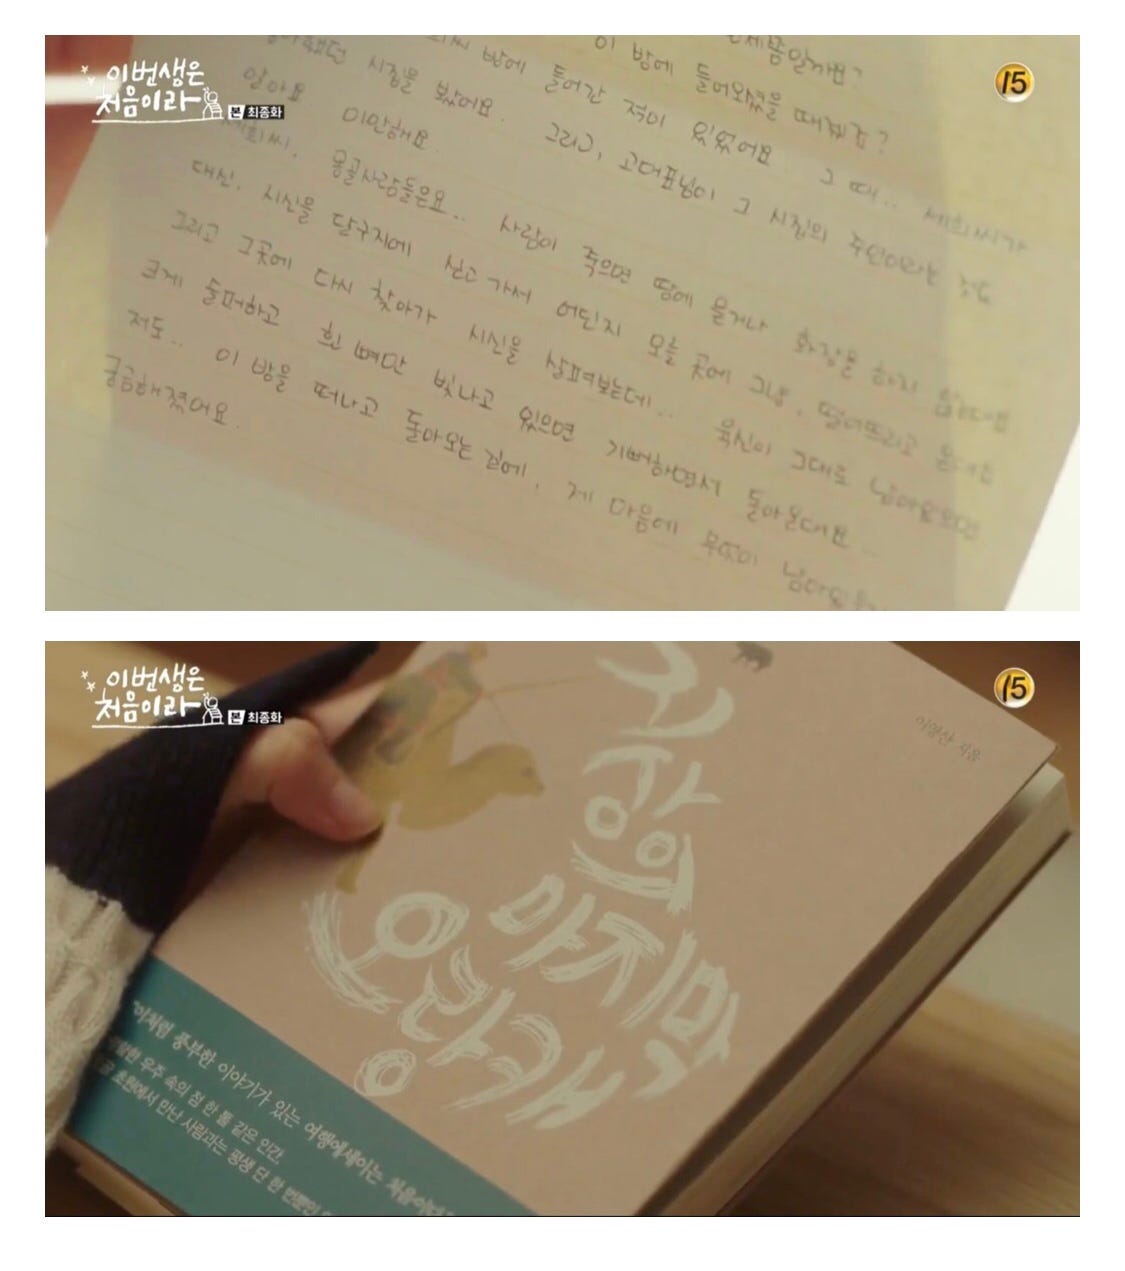 이번생은
처음이라
본 최종화
15
이 방에 들어와셨을 때겠죠?
방에 들어간 적이 있었어요. 그 때.. 세희씨가
시집을 봤어요. 그리고, 고대표님이 그 시집의 주인이라는 것도
알아요 미안해요.
몽골사람들은요.. 사람이 죽으면 땅에 묻거나 화장을 하지 않는대요
대신, 시신을 달구지에 싣고 가서 어딘지 모를 곳에 그냥, 떨어뜨리고 온대요
그리고 그곳에 다시 찾아가 시신을 살펴보는데... 육신이 그대로 남아있으면
크게 슬퍼하고 흰 뼈만 빛나고 있으면 기뻐하면서 돌아온대요...
저도.. 이 방을 떠나고 돌아오는 길에, 제 마음에 무엇이
궁금해졌어요.
이번생은
처음이라
본 최종화
15
지상의
마지막
오랑캐
이영산 지음
"이처럼 풍부한 이야기가 있는 여행에세이는 처음이다
우주 속의 점 한 톨 같은 인간,
초원에서 만난 사람과는 평생 단 한 번뿐인